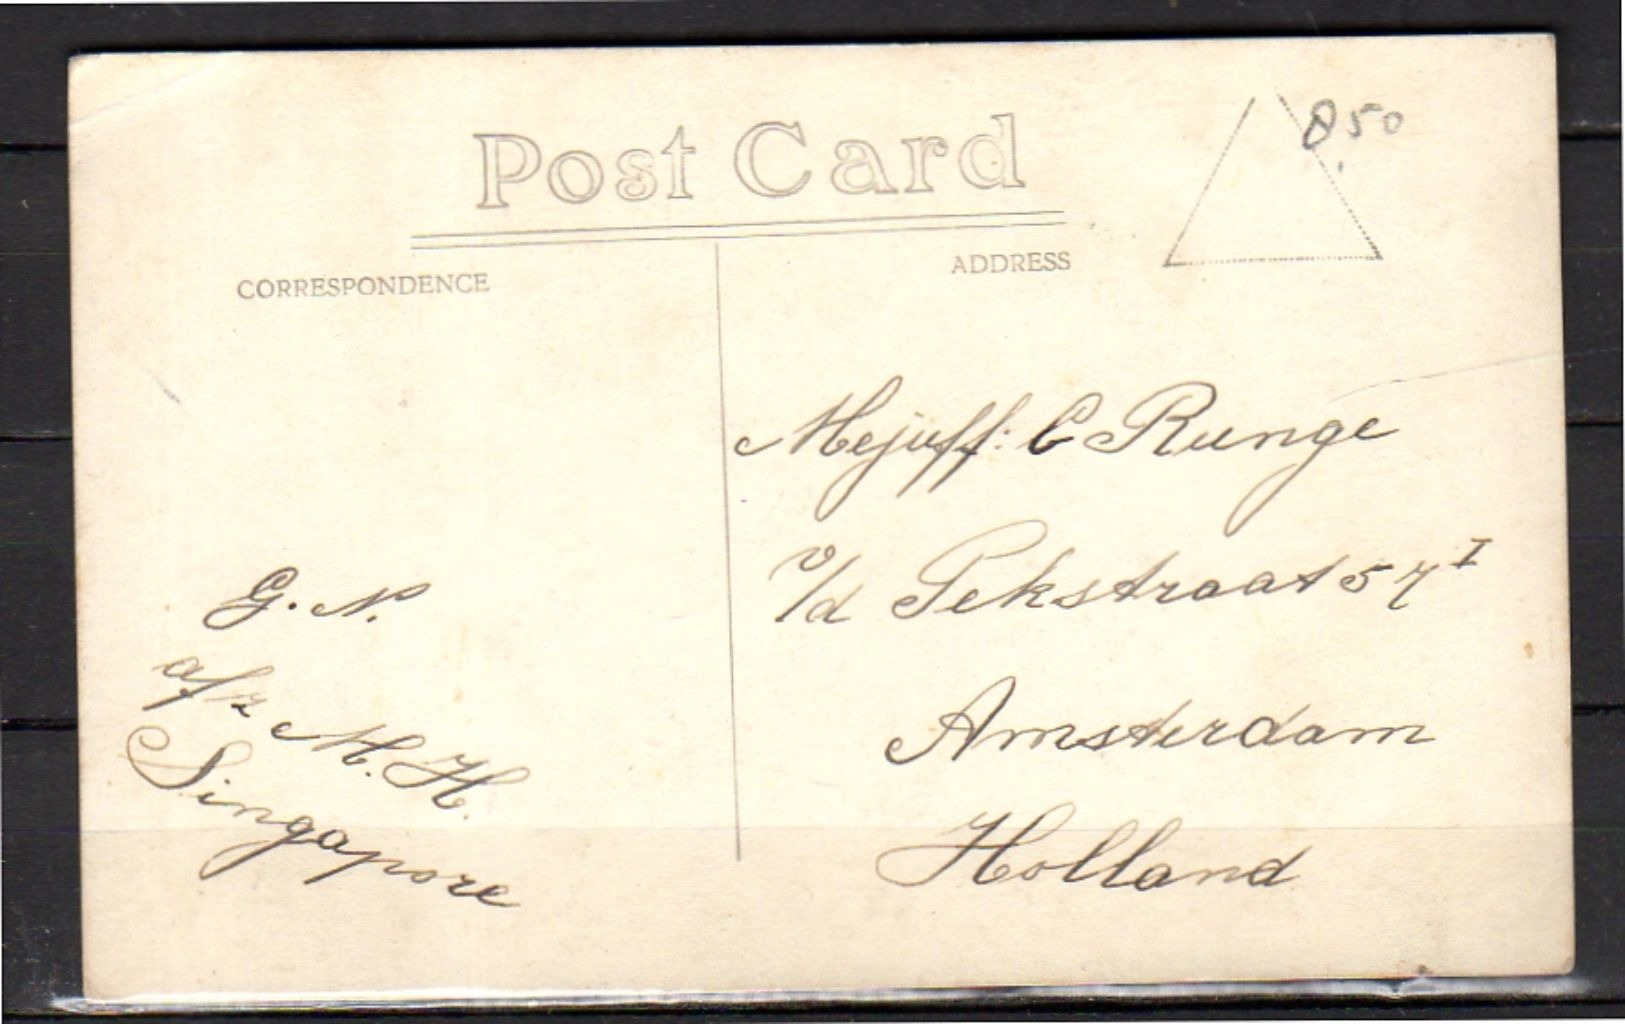 Post Card
CORRESPONDENCE
ADDRESS
850
Mejuff: C Runge
v/d Pekstraat 57 I
Amsterdam
Holland
G. N.
a/z M. H.
Singapore